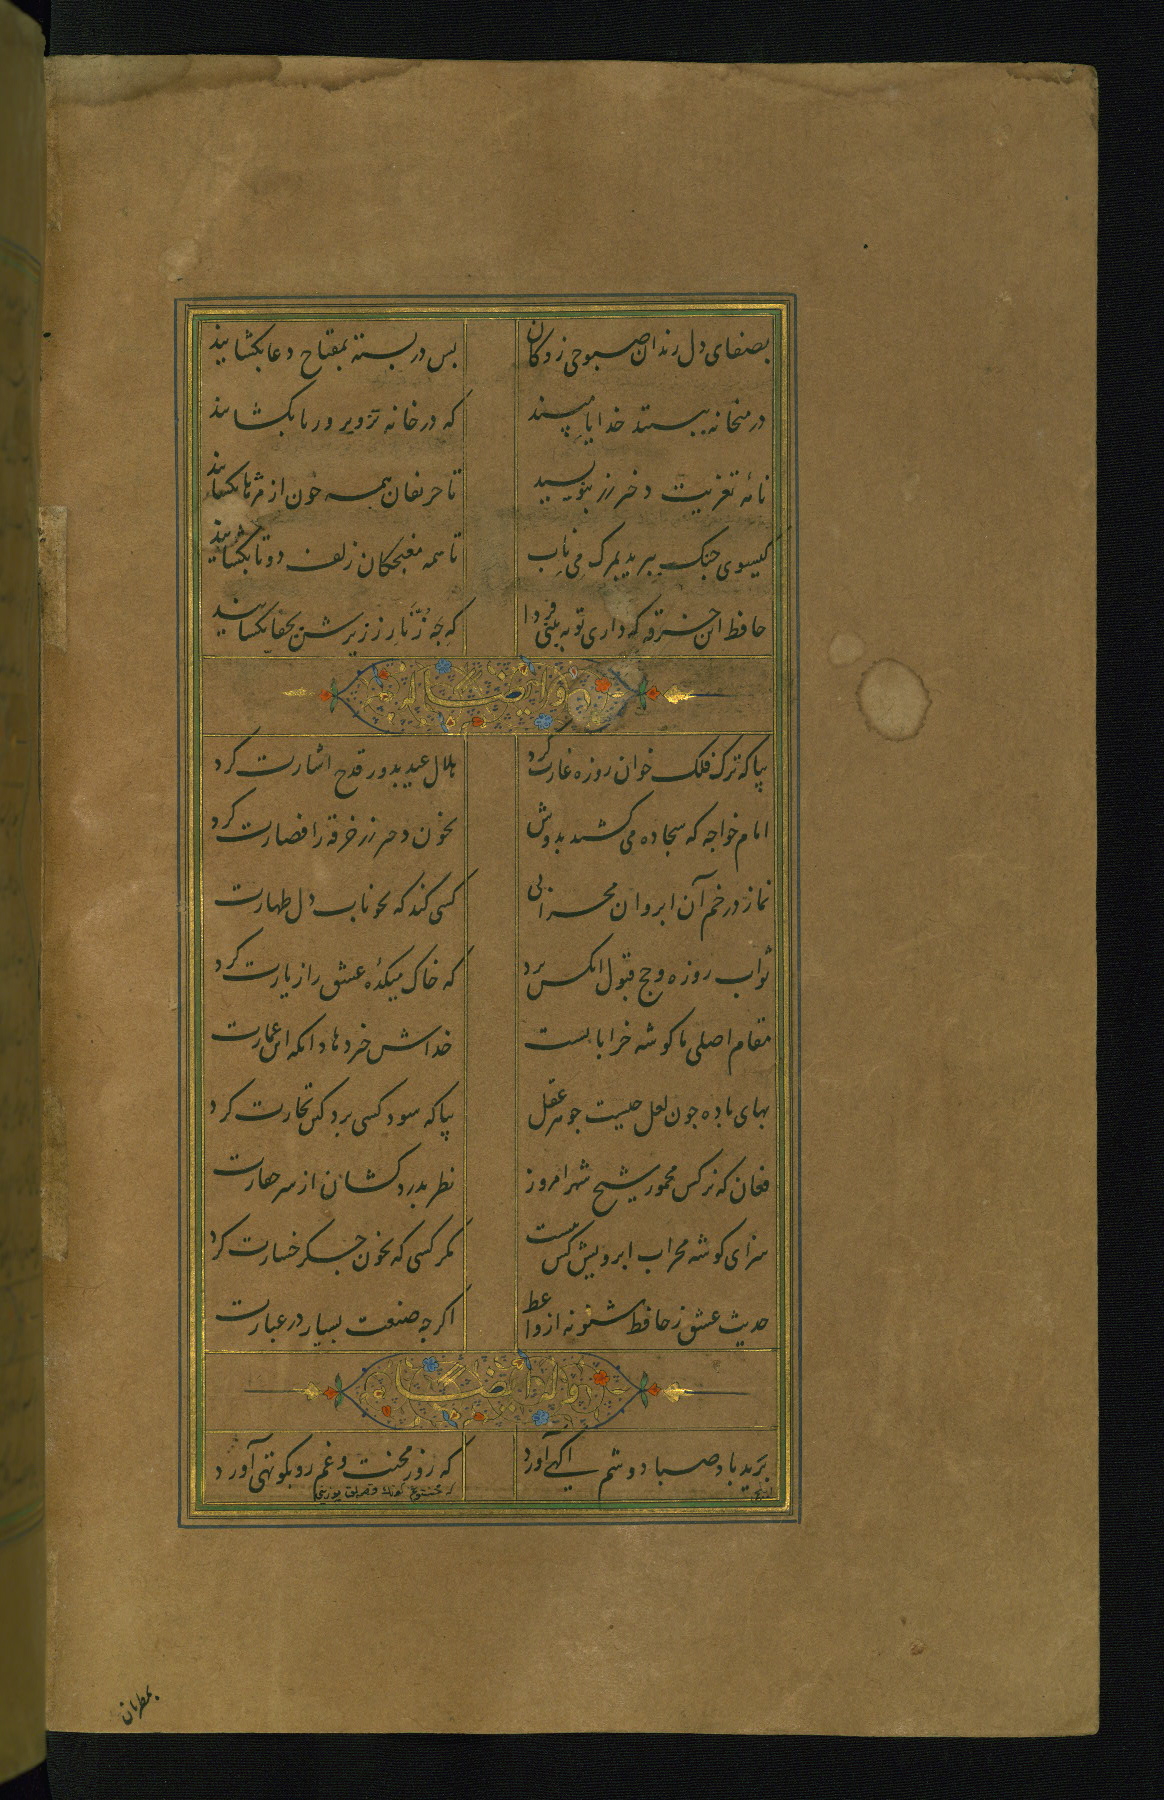 بصفای دل رندان صبوحی زدکان بس در بسته بمفتاح دعا بکشایند
در میخانه ببستند خدایا مپسند که در خانه تزویر و ریا بکشایند
نامهٔ تعزیت دختر رز بنویسید تا حریفان همه خون از مژها بکشایند
کیسوی چنک ببرید بمرک می ناب تا همه مغبچکان زلف دوتا بکشایند
حافظ این خرقه که داری تو ببینی فردا که چه زنار ز زیرش بجفا بکشایند
وله ایضا
بیا که ترک فلک خوان روزه غارت کرد هلال عید بدور قدح اشارت کرد
امام خواجه که سجاده می کشید بدوش بخون دختر رز خرقه را قصارت کرد
نماز در خم آن ابروان محرابی کسی کند که بخوناب دل طهارت
ثواب روزه و حج قبول انکس برد که خاک میکدهٔ عشق را زیارت کرد
مقام اصلی ما کوشه خراباتست خداش خیر دهاد انکه این عمارت
بهای باده چون لعل چیست جوهر عقل بیا که سود کسی برد کین تجارت کرد
فغان که نرکس مخمور شیخ شهر امروز نظر بدردکشان از سر حقارت
سزای کوشه محراب ابرویش کس نیست مکر کسی که بخون جکر خسارت کرد
حدیث عشق ز حافظ شنو نه از واعظ اکرچه صنعت بسیار در عبارت
وله ایضا
برید باد صبا دوشم اکهی آورد که روز محنت و غم رو بکوتهی آورد
بمطربان